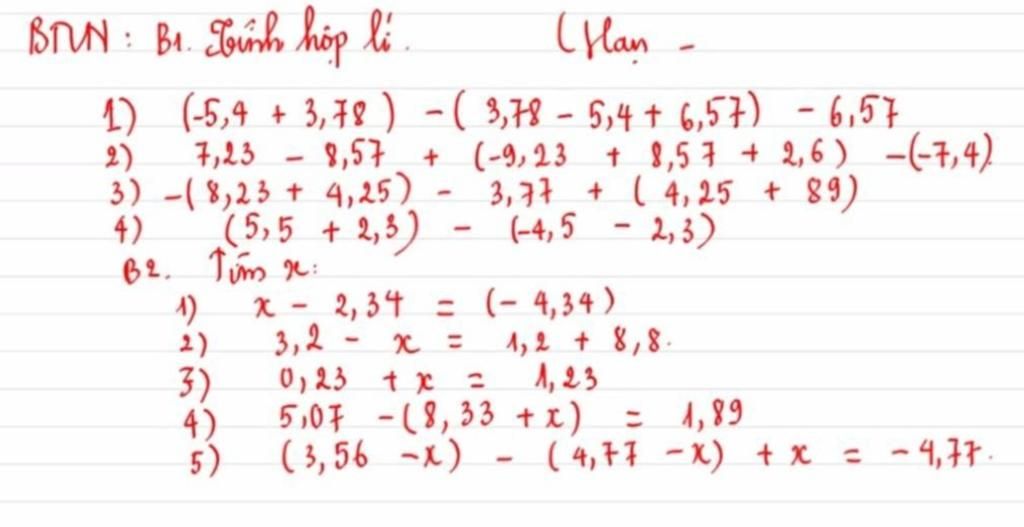 BTVN: B1. Tính hợp lí. (Hạn -
1) (-5,4 + 3,78) - (3,78 - 5,4 + 6,57) - 6,57
2) 7,23 - 8,57 + (-9,23 + 8,57 + 2,6) -(-7,4)
3) -(8,23 + 4,25) - 3,77 + (4,25 + 89)
4) (5,5 + 2,3) - (-4,5 - 2,3)
B2. Tìm x:
1) x - 2,34 = (-4,34)
2) 3,2 - x = 1,2 + 8,8.
3) 0,23 + x = 1,23
4) 5,07 - (8,33 + x) = 1,89
5) (3,56 - x) - (4,77 - x) + x = -4,77.